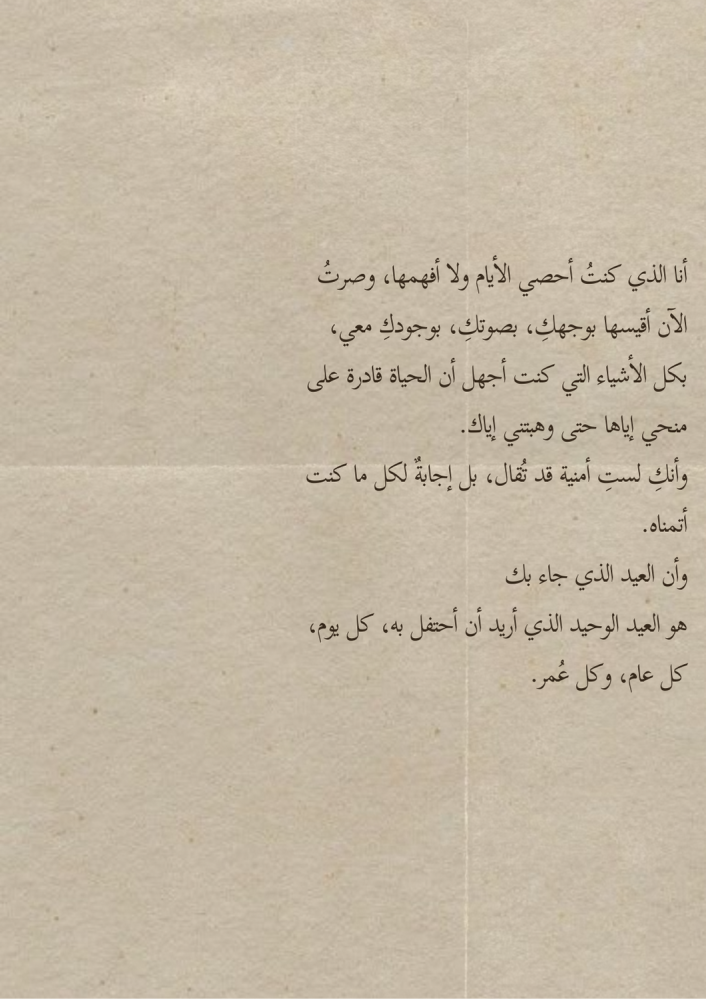 أنا الذي كنتُ أحصي الأيام ولا أفهمها، وصرتُ
الآن أقيسها بوجهكِ، بصوتكِ، بوجودكِ معي،
بكل الأشياء التي كنت أجهل أن الحياة قادرة على
منحي إياها حتى وهبتني إياك.
وأنكِ لستِ أمنية قد تُقال، بل إجابةٌ لكل ما كنت
أتمناه.
وأن العيد الذي جاء بك
هو العيد الوحيد الذي أريد أن أحتفل به، كل يوم،
كل عام، وكل عُمر.